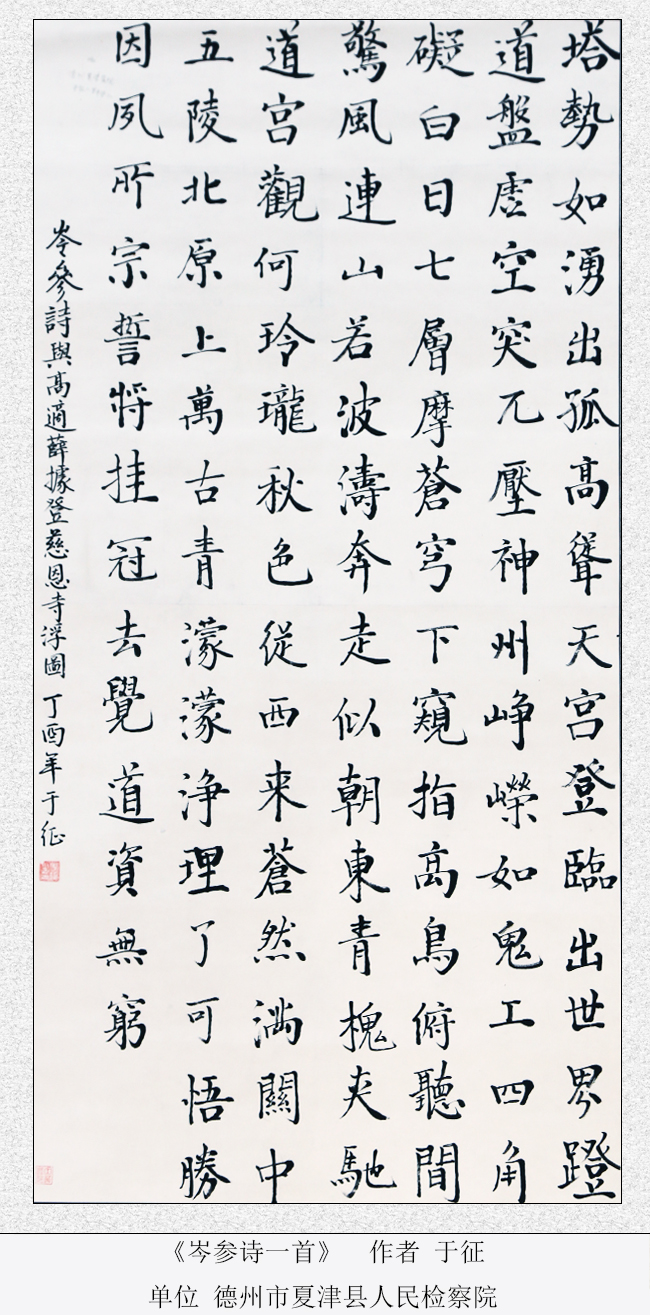 塔勢如湧出孤高聳天宮登臨出世界蹬
道盤虛空突兀壓神州崢嶸如鬼工四角
礙白日七層摩蒼穹下窺指高鳥俯聽間
驚風連山若波濤奔走似朝東青槐夾馳
道宮觀何玲瓏秋色從西来蒼然滿關中
五陵北原上萬古青濛濛淨理了可悟勝
因夙所宗誓將挂冠去覺道資無窮
岑參詩與高適薛據登慈恩寺浮圖 丁酉年于征
《岑参诗一首》 作者 于征
单位 德州市夏津县人民检察院